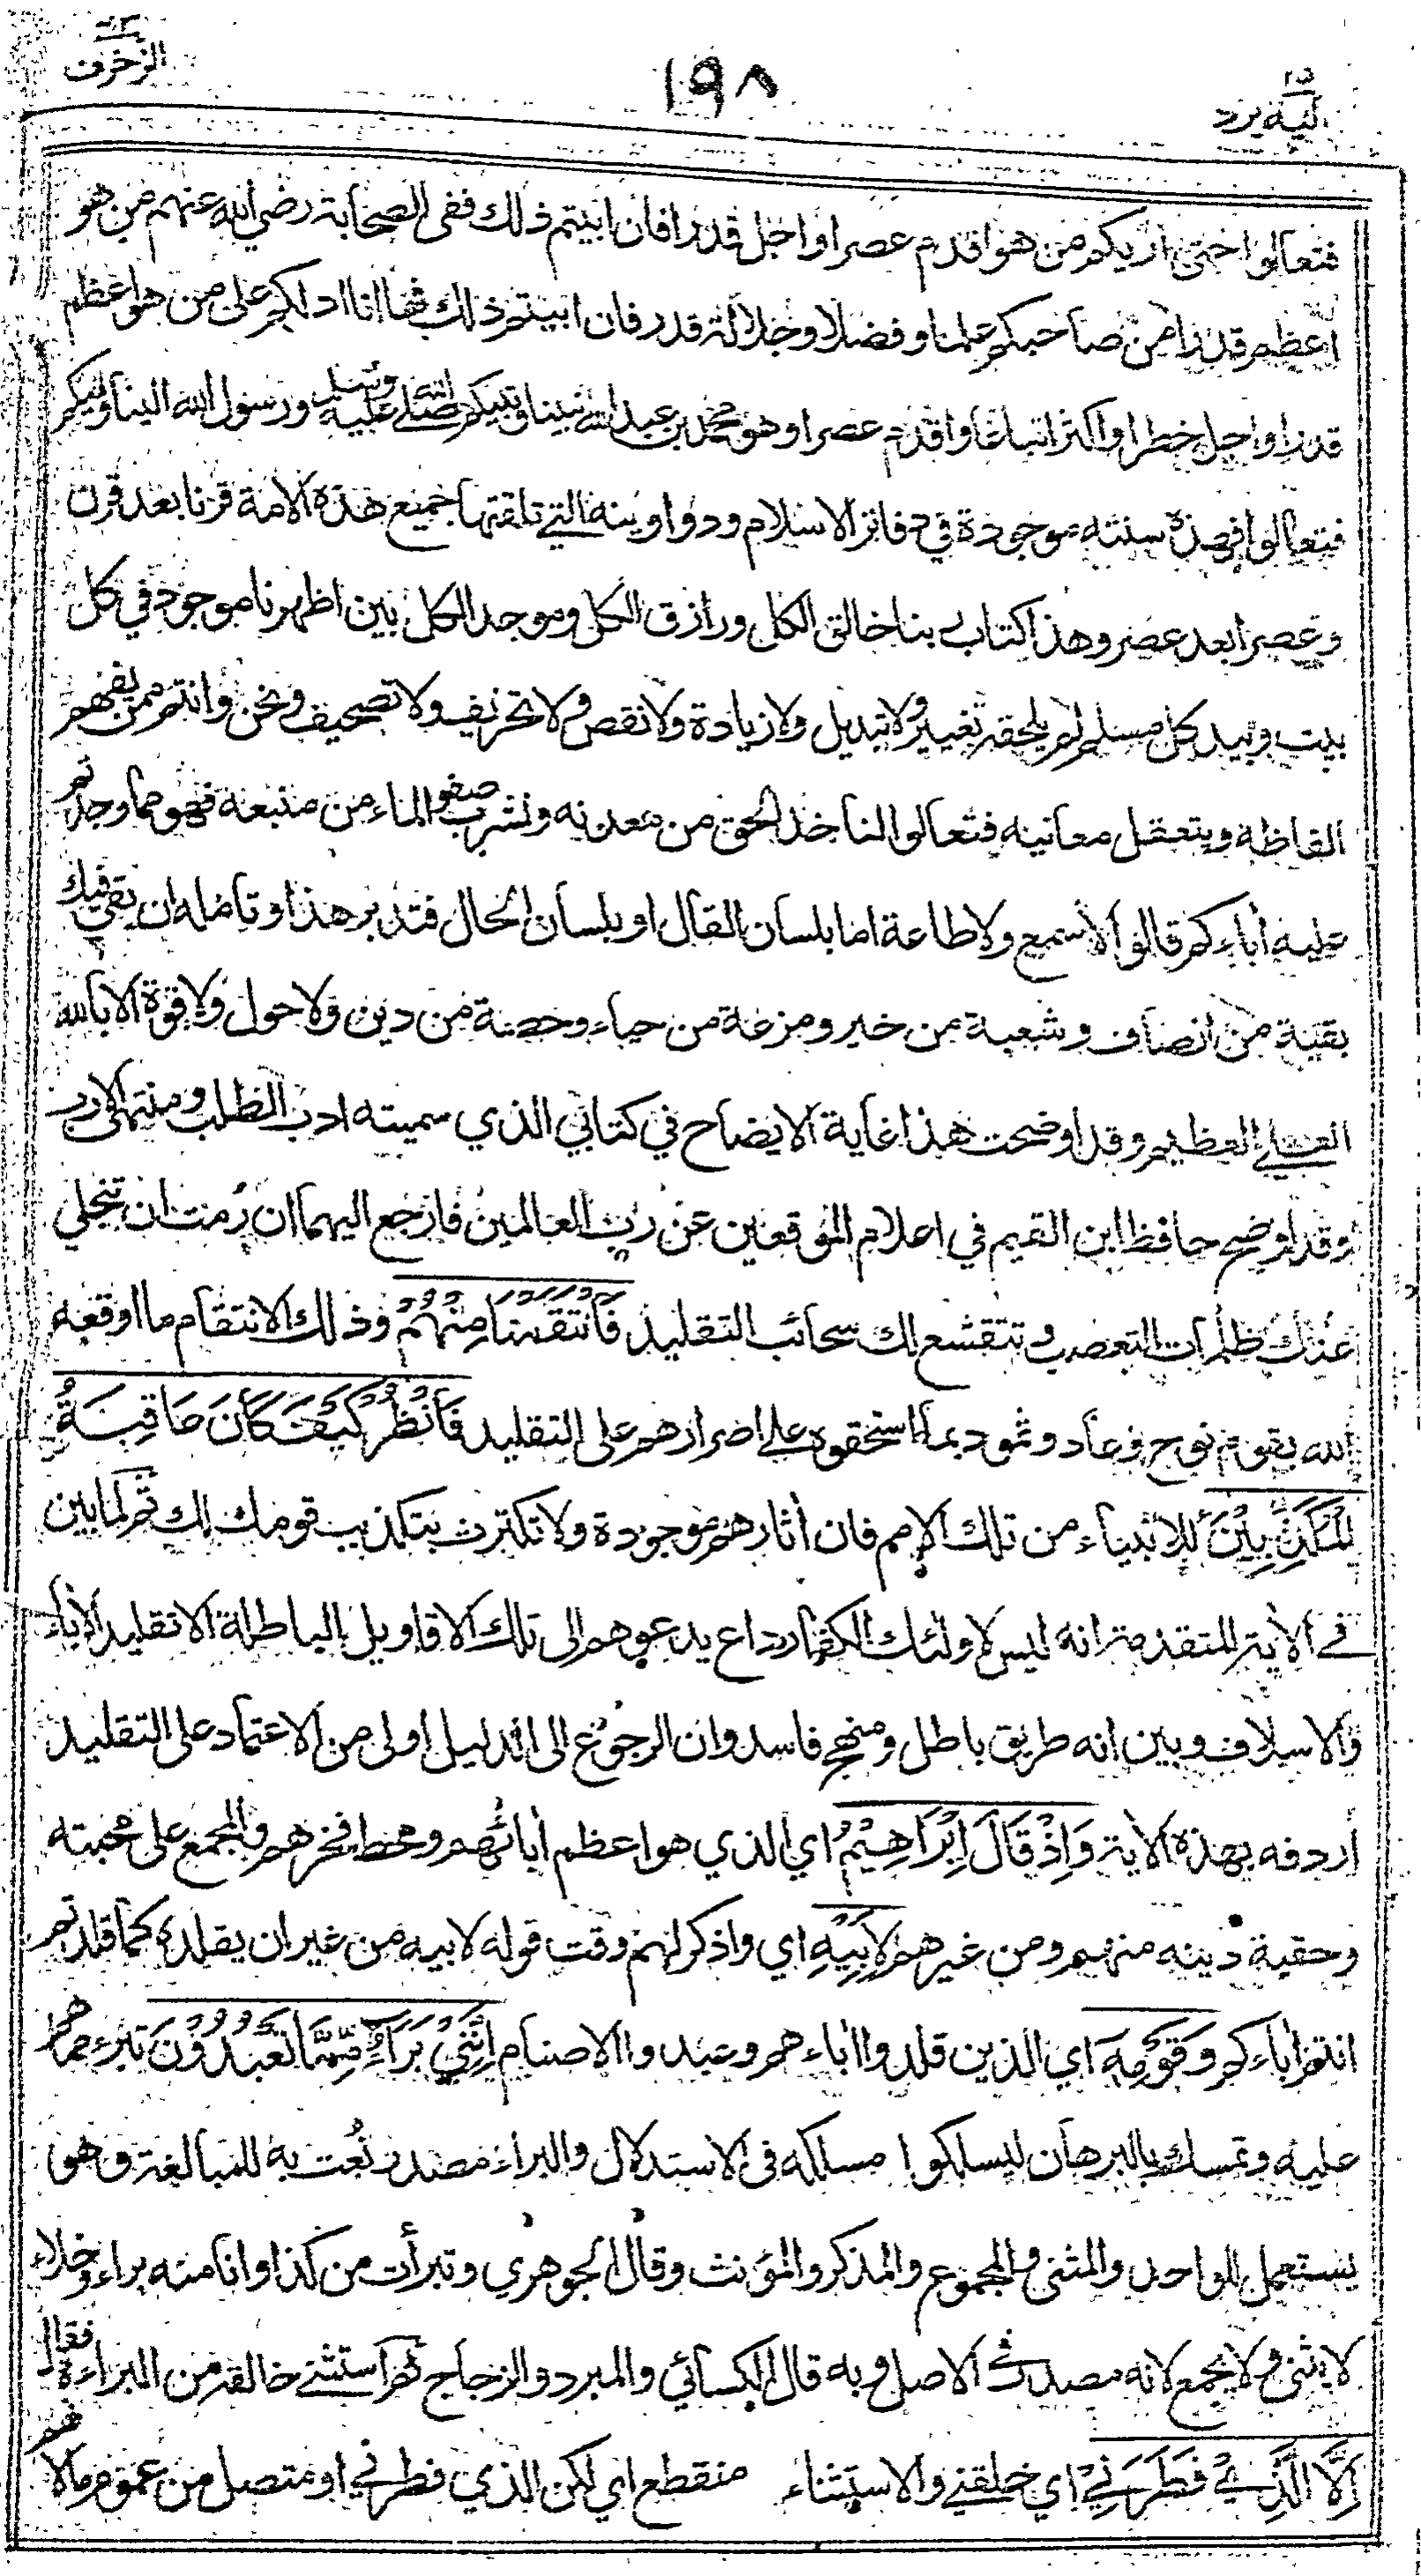 ٢٥
اليه يرد
١٩٨
٤٣
الزخرف
فتعالوا حتى اريكم من هو اقدم عصرا واجل قدرا فان ابيتم ذلك ففى الصحابة رضي الله عنهم من هو
اعظم قدرا من صاحبكم علما وفضلا وجلالة قدر فان ابيتم ذلك فها انا ادلكم على من هو اعظم
قدرا واجل خطرا واكثر اتباعا واقدم عصرا وهو محمد بن عبد الله نبينا ونبيكم صلى الله عليه وسلم ورسول الله الينا واليكم
فتعالوا فهذه سنته موجودة في دفاتر الاسلام ودواوينه التي تلقتها جميع هذه الامة قرنا بعد قرن
وعصرا بعد عصر وهذا كتاب ربنا خالق الكل ورازق الكل وموجد الكل بين اظهرنا موجود في كل
بيت وبيد كل مسلم لم يلحقه تغيير ولا تبديل ولا زيادة ولا نقص ولا تحريف ولا تصحيف ونحن وانتم ممن يفهم
الفاظه ويتعقل معانيه فتعالوا لنأخذ الحق من معدنه ونشرب صفو الماء من منبعه فهو مما وجدتم
عليه أباءكم قالوا لا سمع ولا طاعة اما بلسان القال او بلسان الحال فتدبر هذا وتأمله ان بقي فيك
بقية من انصاف وشعبة من خير ومزعة من حياء وحصة من دين ولا حول ولا قوة الا بالله
العلي العظيم وقد اوضحت هذا غاية الايضاح في كتابي الذي سميته ادب الطلب ومنتهى الارب
وقد اوضح حافظ ابن القيم في اعلام الموقعين عن رب العالمين فارجع اليهما ان رمت ان تنجلي
عنك ظلمات التعصب وتتقشع لك سحائب التقليد فَانْتَقَمْنَا مِنْهُمْ وذلك الانتقام ما اوقعه
الله بقوم نوح وعاد وثمود بما استحقوه على اصرارهم على التقليد فَانْظُرْ كَيْفَ كَانَ عَاقِبَةُ
الْمُكَذِّبِيْنَ للانبياء من تلك الامم فان أثارهم موجودة ولا تكترث بتكذيب قومك لك ثم لما بين
في الأية المتقدمة انه ليس لاولئك الكفار داع يدعوهم الى تلك الاقاويل الباطلة الا تقليد الأباء
والاسلاف وبين انه طريق باطل ومنهج فاسد وان الرجوع الى الدليل اولى من الاعتماد على التقليد
أردفه بهذه الأية وَاِذْ قَالَ اِبْرَاهِيْمُ اي الذي هو اعظم أبائهم ومحط فخرهم والمجمع على محبته
وحقية دينه منهم ومن غيرهم لِاَبِيْهِ اي واذكر لهم وقت قوله لابيه من غير ان يقلده كما قلدتم
انتم أباءكم وَقَوْمِهٖ اي الذين قلدوا أباءهم وعبدوا الاصنام اِنَّنِيْ بَرَآءٌ مِّمَّا تَعْبُدُوْنَ تبرء مما هم
عليه وتمسك بالبرهان ليسلكوا مسلكه في الاستدلال والبراء مصدر نُعت به للمبالغة وهو
يستعمل للواحد والمثنى والمجموع والمذكر والمؤنث وقال الجوهري وتبرأت من كذا وانا منه براء وخلاء
لا يثنى ولا يجمع لانه مصدر في الاصل وبه قال الكسائي والمبرد والزجاج ثم استثنى خالقه من البراءة فقال
اِلَّا الَّذِيْ فَطَرَنِيْ اي خلقني والاستثناء منقطع اي لكن الذي فطرني او متصل من عموم ما لانهم